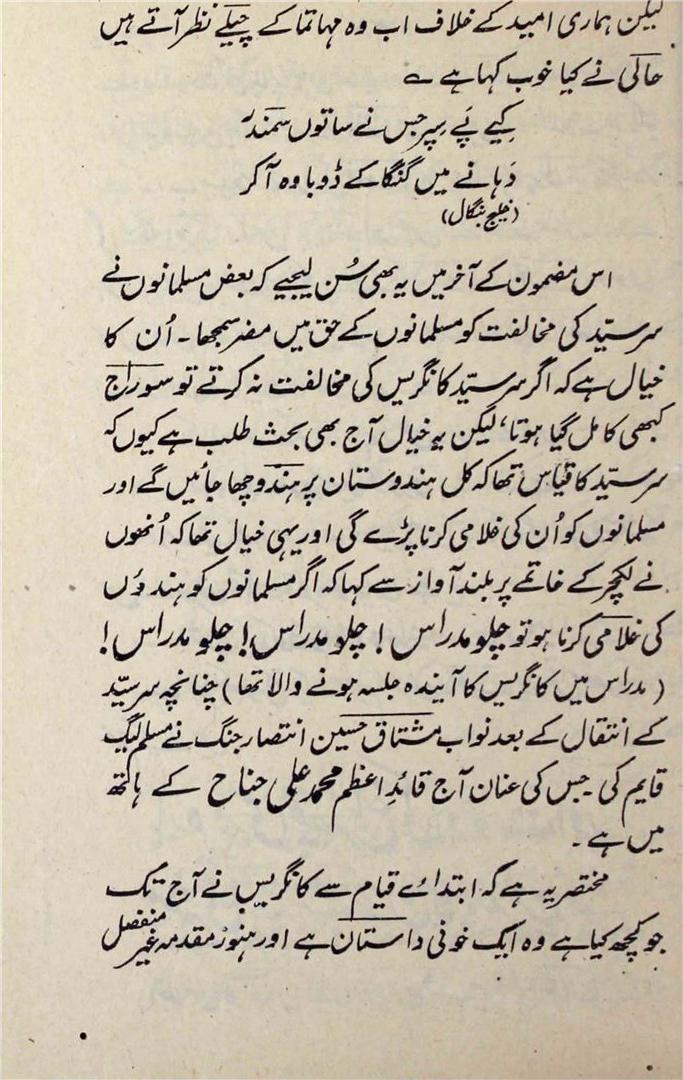 لیکن ہماری امید کے خلاف اب وہ مہاتما کے چیلے نظر آتے ہیں
حالی نے کیا خوب کہا ہے ؎
کیے پے سپر جس نے ساتوں سمندر
دَہانے میں گنگا کے ڈوبا وہ آکر
(خلیج بنگال)
اس مضمون کے آخر میں یہ بھی سُن لیجیے کہ بعض مسلمانوں نے
سرسیّد کی مخالفت کو مسلمانوں کے حق میں مضر سمجھا۔ اُن کا
خیال ہے کہ اگر سرسیّد کانگریس کی مخالفت نہ کرتے تو سوراج
کبھی کا مل گیا ہوتا، لیکن یہ خیال آج بھی بحث طلب ہے کیوں کہ
سرسیّد کا قیاس تھا کہ کل ہندوستان پر ہندو چھا جائیں گے اور
مسلمانوں کو اُن کی غلامی کرنا پڑے گی اور یہی خیال تھا کہ اُنھوں
نے لکچر کے خاتمے پر بلند آواز سے کہا کہ اگر مسلمانوں کو ہندوؤں
کی غلامی کرنا ہو تو چلو مدراس! چلو مدراس! چلو مدراس!
(مدراس میں کانگریس کا آیندہ جلسہ ہونے والا تھا) چنانچہ سرسیّد
کے انتقال کے بعد نواب مشتاق حسین انتصار جنگ نے مسلم لیگ
قایم کی جس کی عنان آج قائدِ اعظم محمد علی جناح کے ہاتھ
میں ہے۔
مختصر یہ ہے کہ ابتدائے قیام سے کانگریس نے آج تک
جو کچھ کیا ہے وہ ایک خونی داستان ہے اور ہنوز مقدمہ غیر منفصل